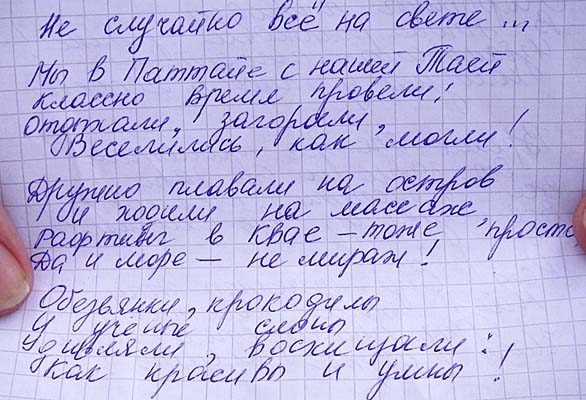 Не случайно всё на свете...
Мы в Паттайе с нашей Таей
классно время провели!
отдыхали, загорали,
Веселились, как могли!
Дружно плавали на остров
и ходили на массаж
рафтинг в Квае – тоже просто,
Да и море – не мираж!
Обезьянки, крокодилы
И учёные слоны
Удивляли, восхищали:
Как красивы и умны!